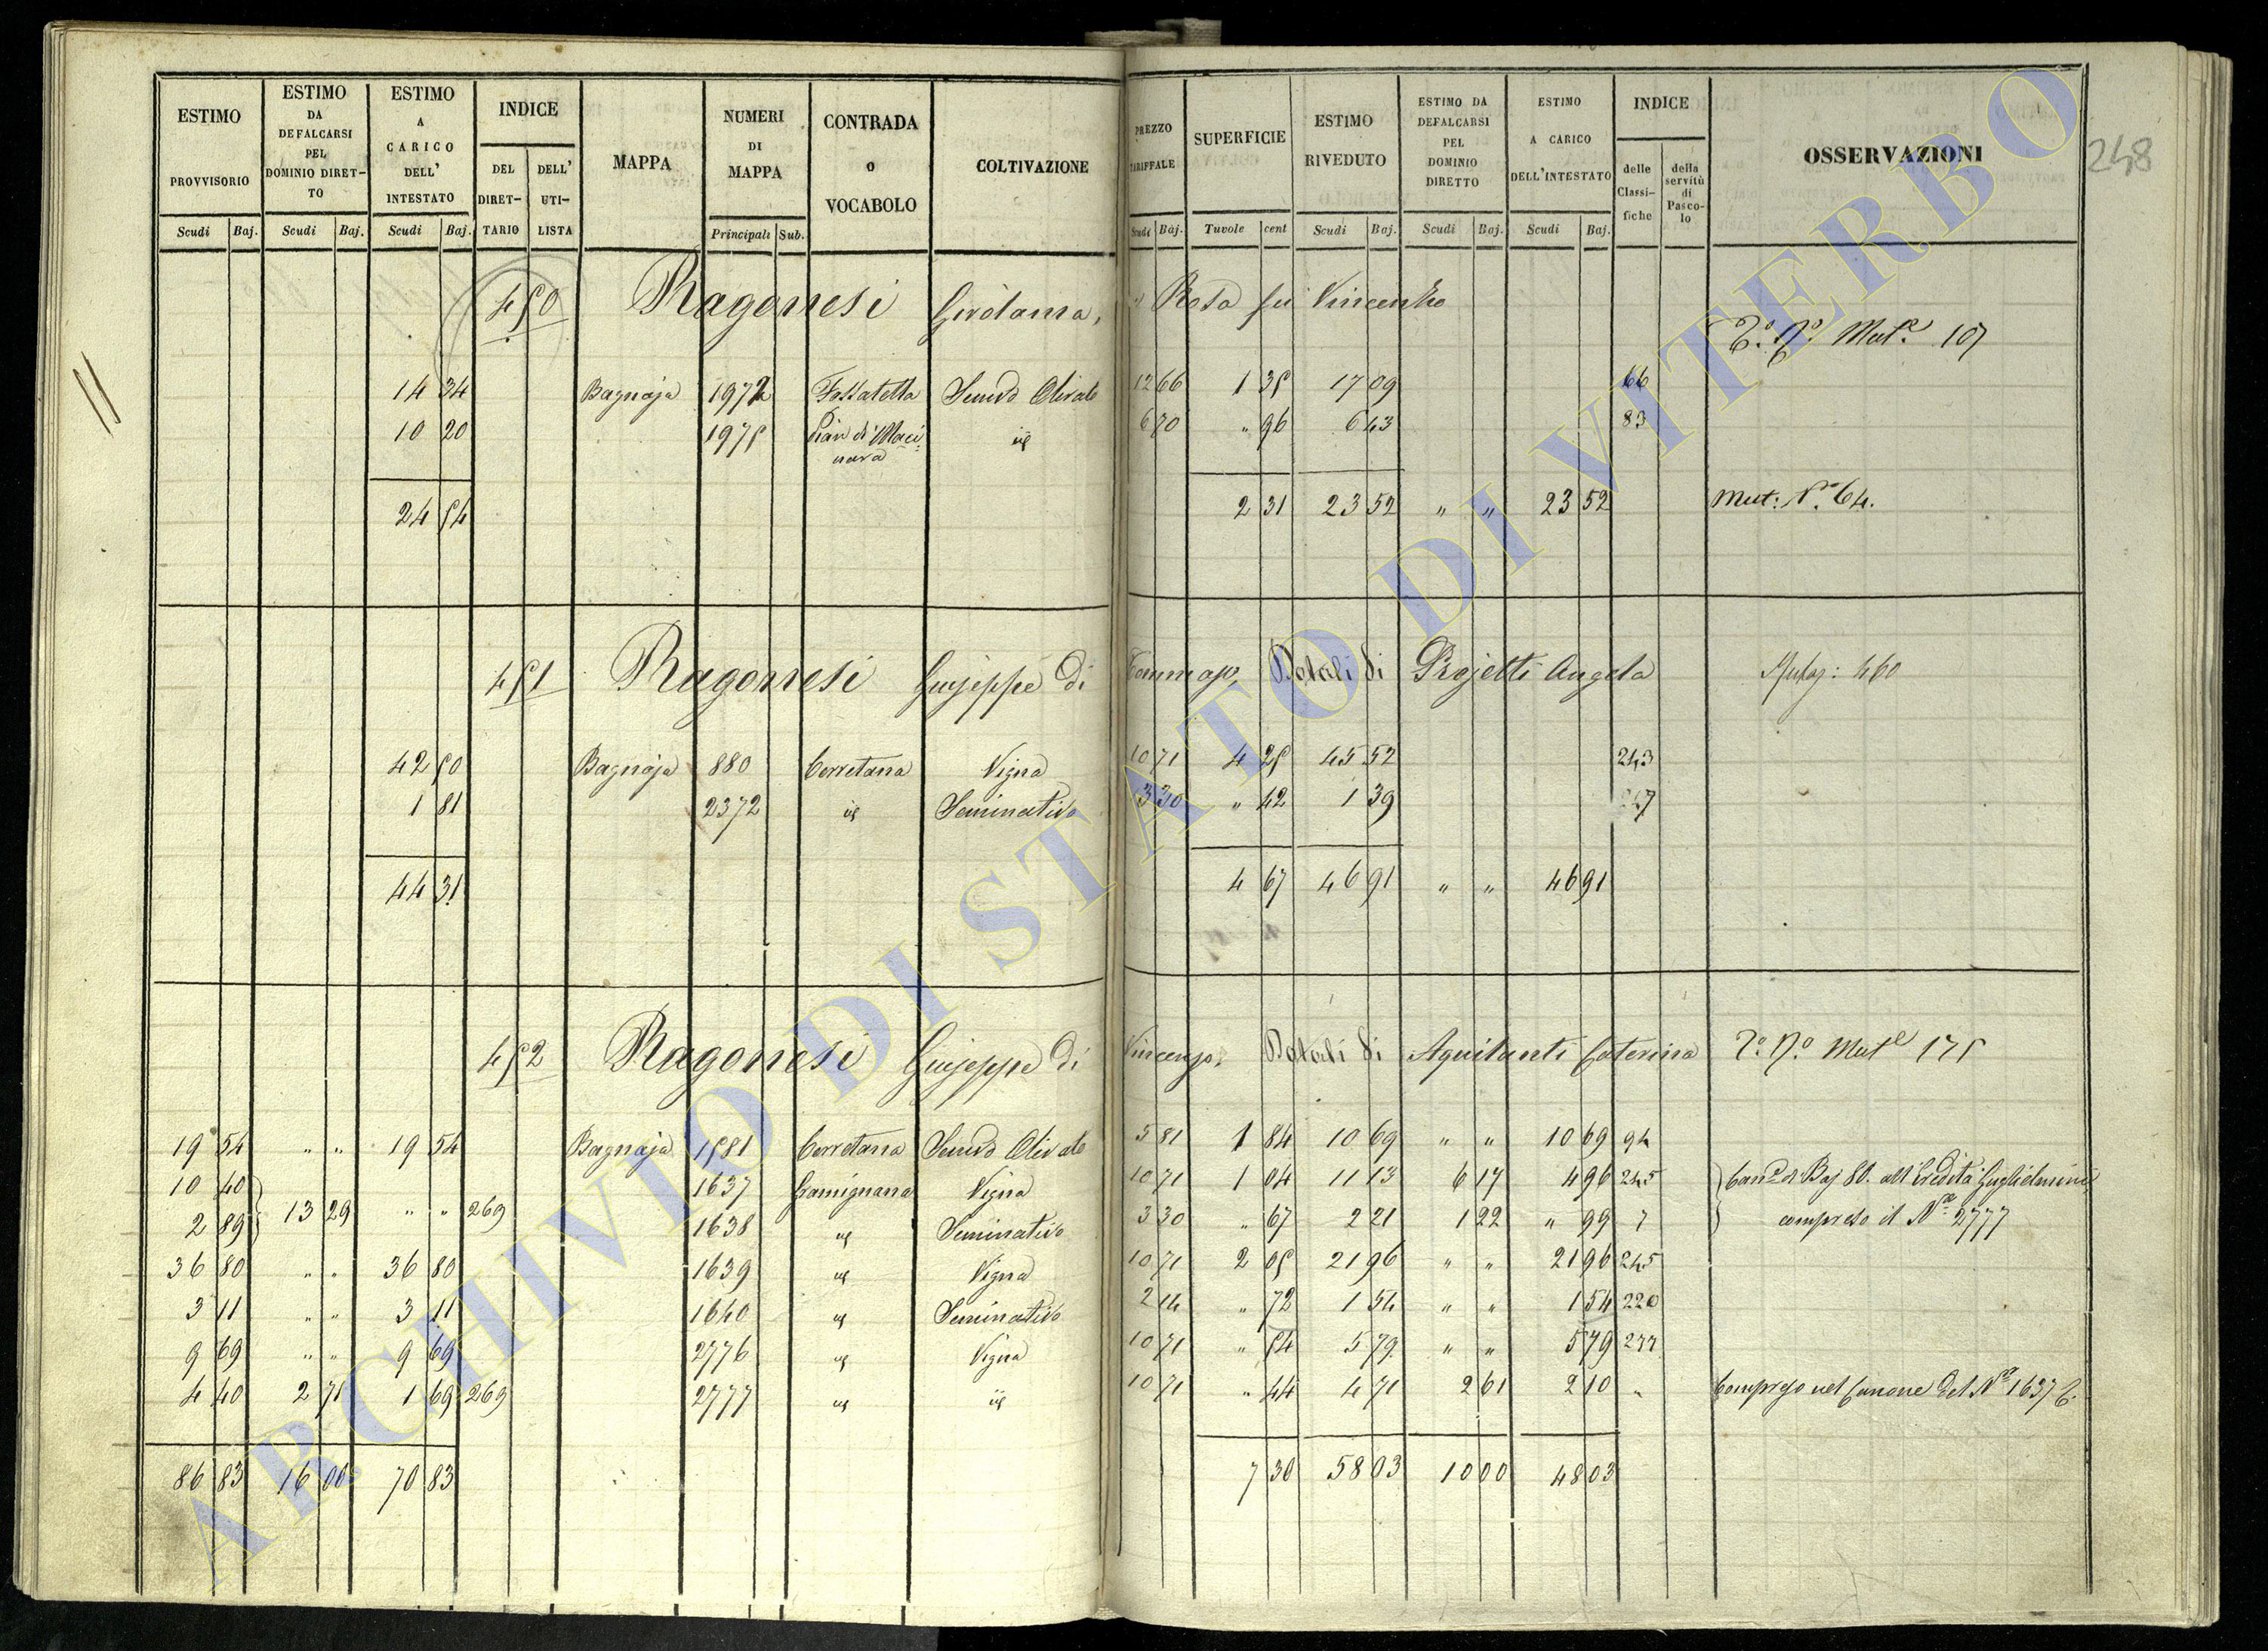 ESTIMO PROVVISORIO Scudi Baj.
ESTIMO DA DEFALCARSI PEL DOMINIO DIRET-TO Scudi Baj.
ESTIMO A CARICO DELL' INTESTATO Scudi Baj.
INDICE DEL DIRET-TARIO DELL' UTI-LISTA
MAPPA
NUMERI DI MAPPA Principali Sub.
CONTRADA o VOCABOLO
COLTIVAZIONE
PREZZO TARIFFALE Scudi Baj.
SUPERFICIE Tavole cent
ESTIMO RIVEDUTO Scudi Baj.
ESTIMO DA DEFALCARSI PEL DOMINIO DIRETTO Scudi Baj.
ESTIMO A CARICO DELL'INTESTATO Scudi Baj.
INDICE delle Classi-fiche della servitù di Pasco-lo
OSSERVAZIONI
248
450 Ragonesi Girolama, Rosa fu Vincenzo
Mut.e 107
14 34 Bagnaja 1972 Fossatella Semvo Olivato 12 66 1 35 17 09 66
10 20 1975 Pian di Maci=nara id 6 70 " 96 6 43 83
24 54 2 31 23 52 " " 23 52 Mut: N.o 64.
451 Ragonesi Giuseppe di Tommaso, Dotali di Projetti Angela 460
42 50 Bagnaja 880 Cerretana Vigna 10 71 4 25 45 52 243
1 81 2372 id Seminativo 3 30 " 42 1 39
44 31 4 67 46 91 " " 46 91
452 Ragonesi Giuseppe di Vincenzo, Dotali di Aquilanti Caterina Mut.e 175
19 54 " " 19 54 Bagnaja 1581 Cerretana Semvo Olivato 5 81 1 84 10 69 " " 10 69 94
10 40 1637 Gamignana Vigna 10 71 1 04 11 13 6 17 4 96 245 Can.e di Baj 80. all'Eredità Guglielmini
2 89 13 29 " " 269 1638 id Seminativo 3 30 " 67 2 21 1 22 " 99 7 compreso il N.o 2777
36 80 " " 36 80 1639 id Vigna 10 71 2 05 21 96 " " 21 96 245
3 11 " " 3 11 1640 id Seminativo 2 14 " 72 1 54 " " 1 54 220
9 69 " " 9 69 2776 id Vigna 10 71 " 54 5 79 " " 5 79 277
4 40 2 71 1 69 269 2777 id id 10 71 " 44 4 71 2 61 2 10 " Compreso nel Canone del N.o 1637
86 83 16 00 70 83 7 30 58 03 10 00 48 03
ARCHIVIO DI STATO DI VITERBO